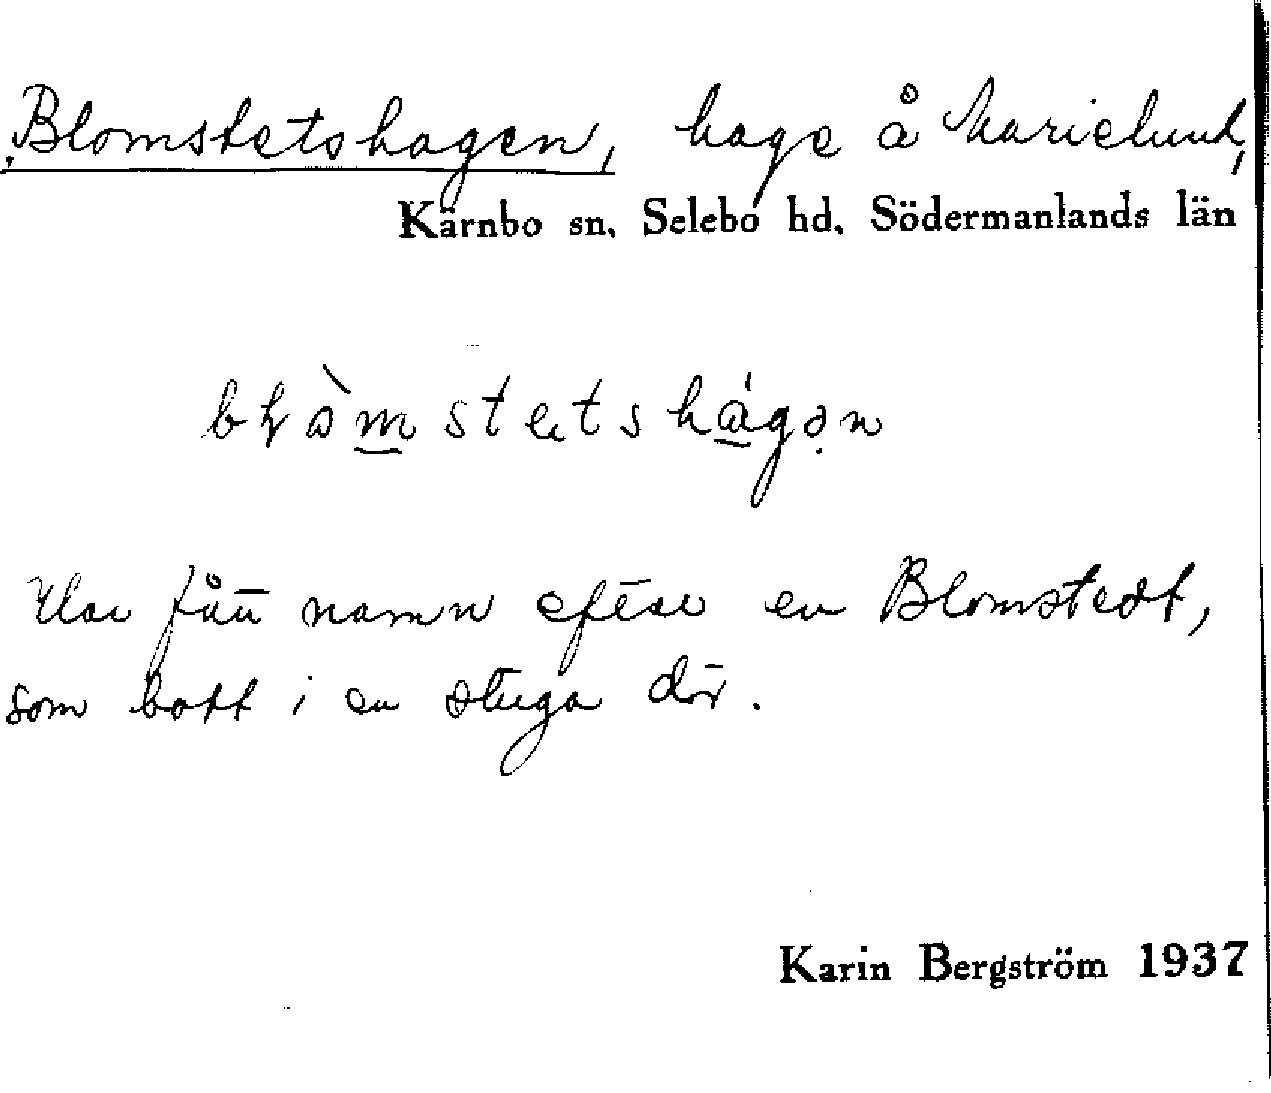 Blomstetshagen, hage å Marielund,
Kärnbo sn, Selebo hd, Södermanlands län
Har fått namn efter en Blomstedt,
som bott i en stuga där.
Karin Bergström 1937